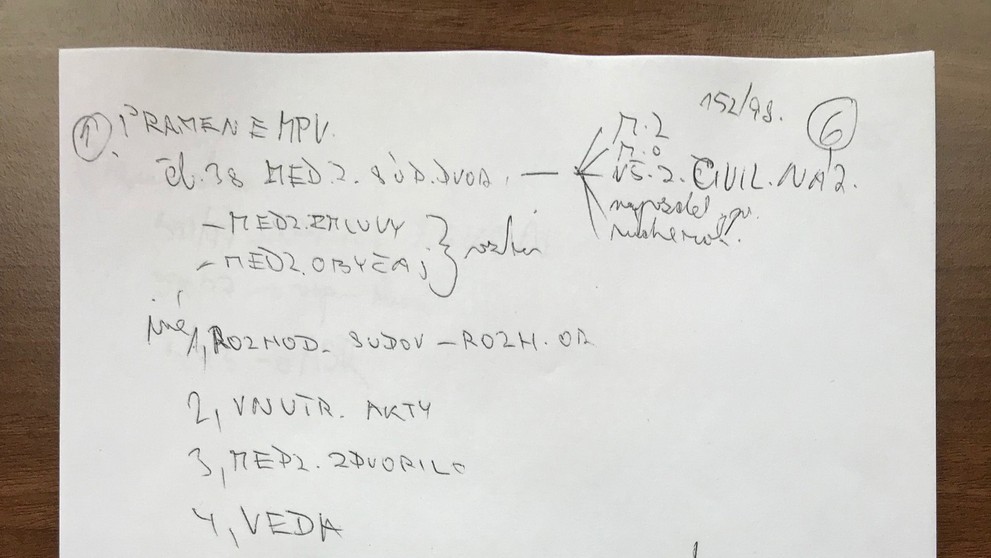 152/98.
6
1. PRAMENE MPV.
čl. 38 MEDZ. SÚD. DVOR. —
M. Z
M. O
VŠ. Z. CIVIL. NÁZ.
- MEDZ. ZMLUVY
- MEDZ. OBYČAJ
iné
1, ROZHOD. SUDOV - ROZH. OR
2, VNUTR. AKTY
3, MEDZ. ZDVORILO
4, VEDA